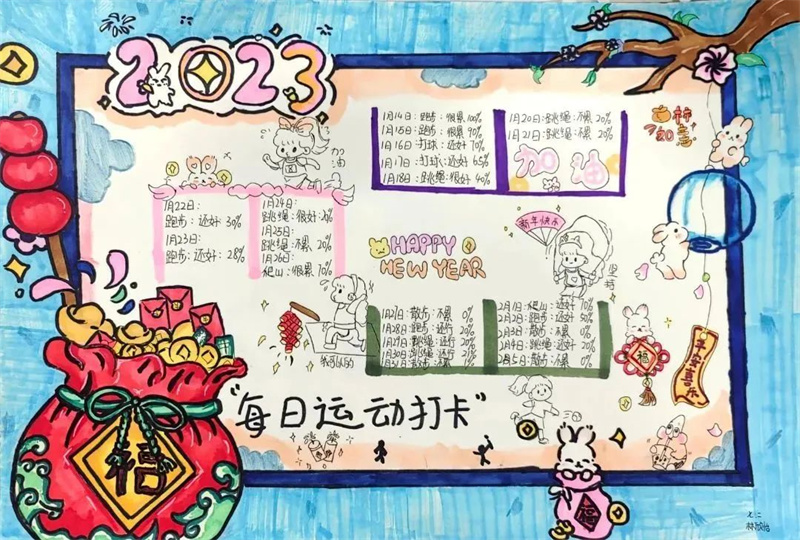 2023
加油
1月14日:跑步:很累100%
1月15日:跑步:很累90%
1月16日:打球:还好70%
1月17日:打球:还好65%
1月18日:跳绳:很好40%
1月20日:跳绳:不累20%
1月21日:跳绳:不累20%
加油
如意
1月22日:
跑步:还好30%
1月23日:
跑步:还好:28%
1月24日:
跳绳:很好:20%
1月25日:
跳绳:不累20%
1月26日:
爬山:很累70%
HAPPY
NEW YEAR
新年快乐
坚持
1月27日:散步:不累0%
1月28日:跑步:还行20%
1月29日:跳绳:还行20%
1月30日:跳绳:还行
1月31日:散步:不累
2月1日:爬山:还好70%
2月2日:跑步:还好50%
2月3日:散步:不累0%
2月4日:跳绳:还好20%
2月5日:散步:不累0%
福
平安喜乐
"每日运动打卡"
福
福
林欣怡